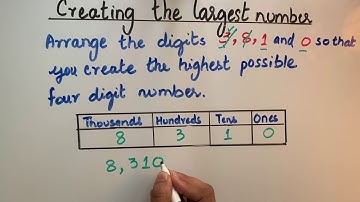 Creating the largest number
Arrange the digits 3, 8, 1 and 0 so that
you create the highest possible
four digit number.
Thousands Hundreds Tens Ones
8 3 1 0
8,310